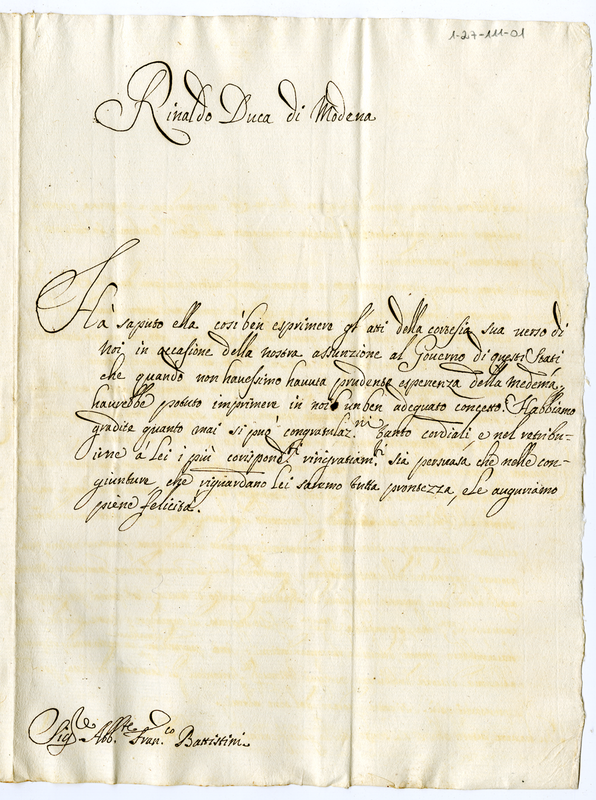 1-27-111-01
Rinaldo Duca di Modena
Hà saputo ella così ben esprimere gl' atti della cortesia sua verso di
Noi in occasione della nostra assunzione al Governo di questi Stati
che quando non havessimo havuta prudente esperienza della medemã,
haverebbe potuto imprimere in noi un ben adequato concetto. Habbiamo
gradite quanto mai si può congratulaz.ni tanto cordiali e nel retribu-
irne à Lei i più corispond.ti ringratiam.ti sia persuasa che nelle con-
giunture che riguardano Lei saremo tutta prontezza, e Le auguriamo
piene felicità.
Sig.re Abb.te Fran.co Battistini